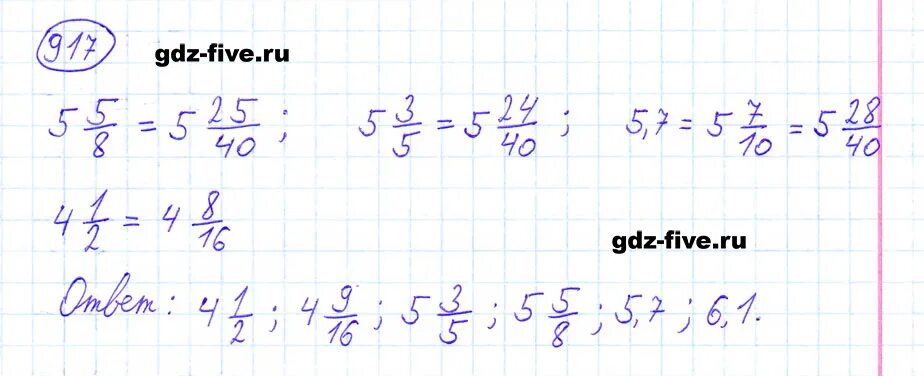 917 gdz-five.ru
5 5/8 = 5 25/40 ; 5 3/5 = 5 24/40 ; 5,7 = 5 7/10 = 5 28/40
4 1/2 = 4 8/16
gdz-five.ru
Ответ: 4 1/2 ; 4 9/16 ; 5 3/5 ; 5 5/8 ; 5,7 ; 6,1.